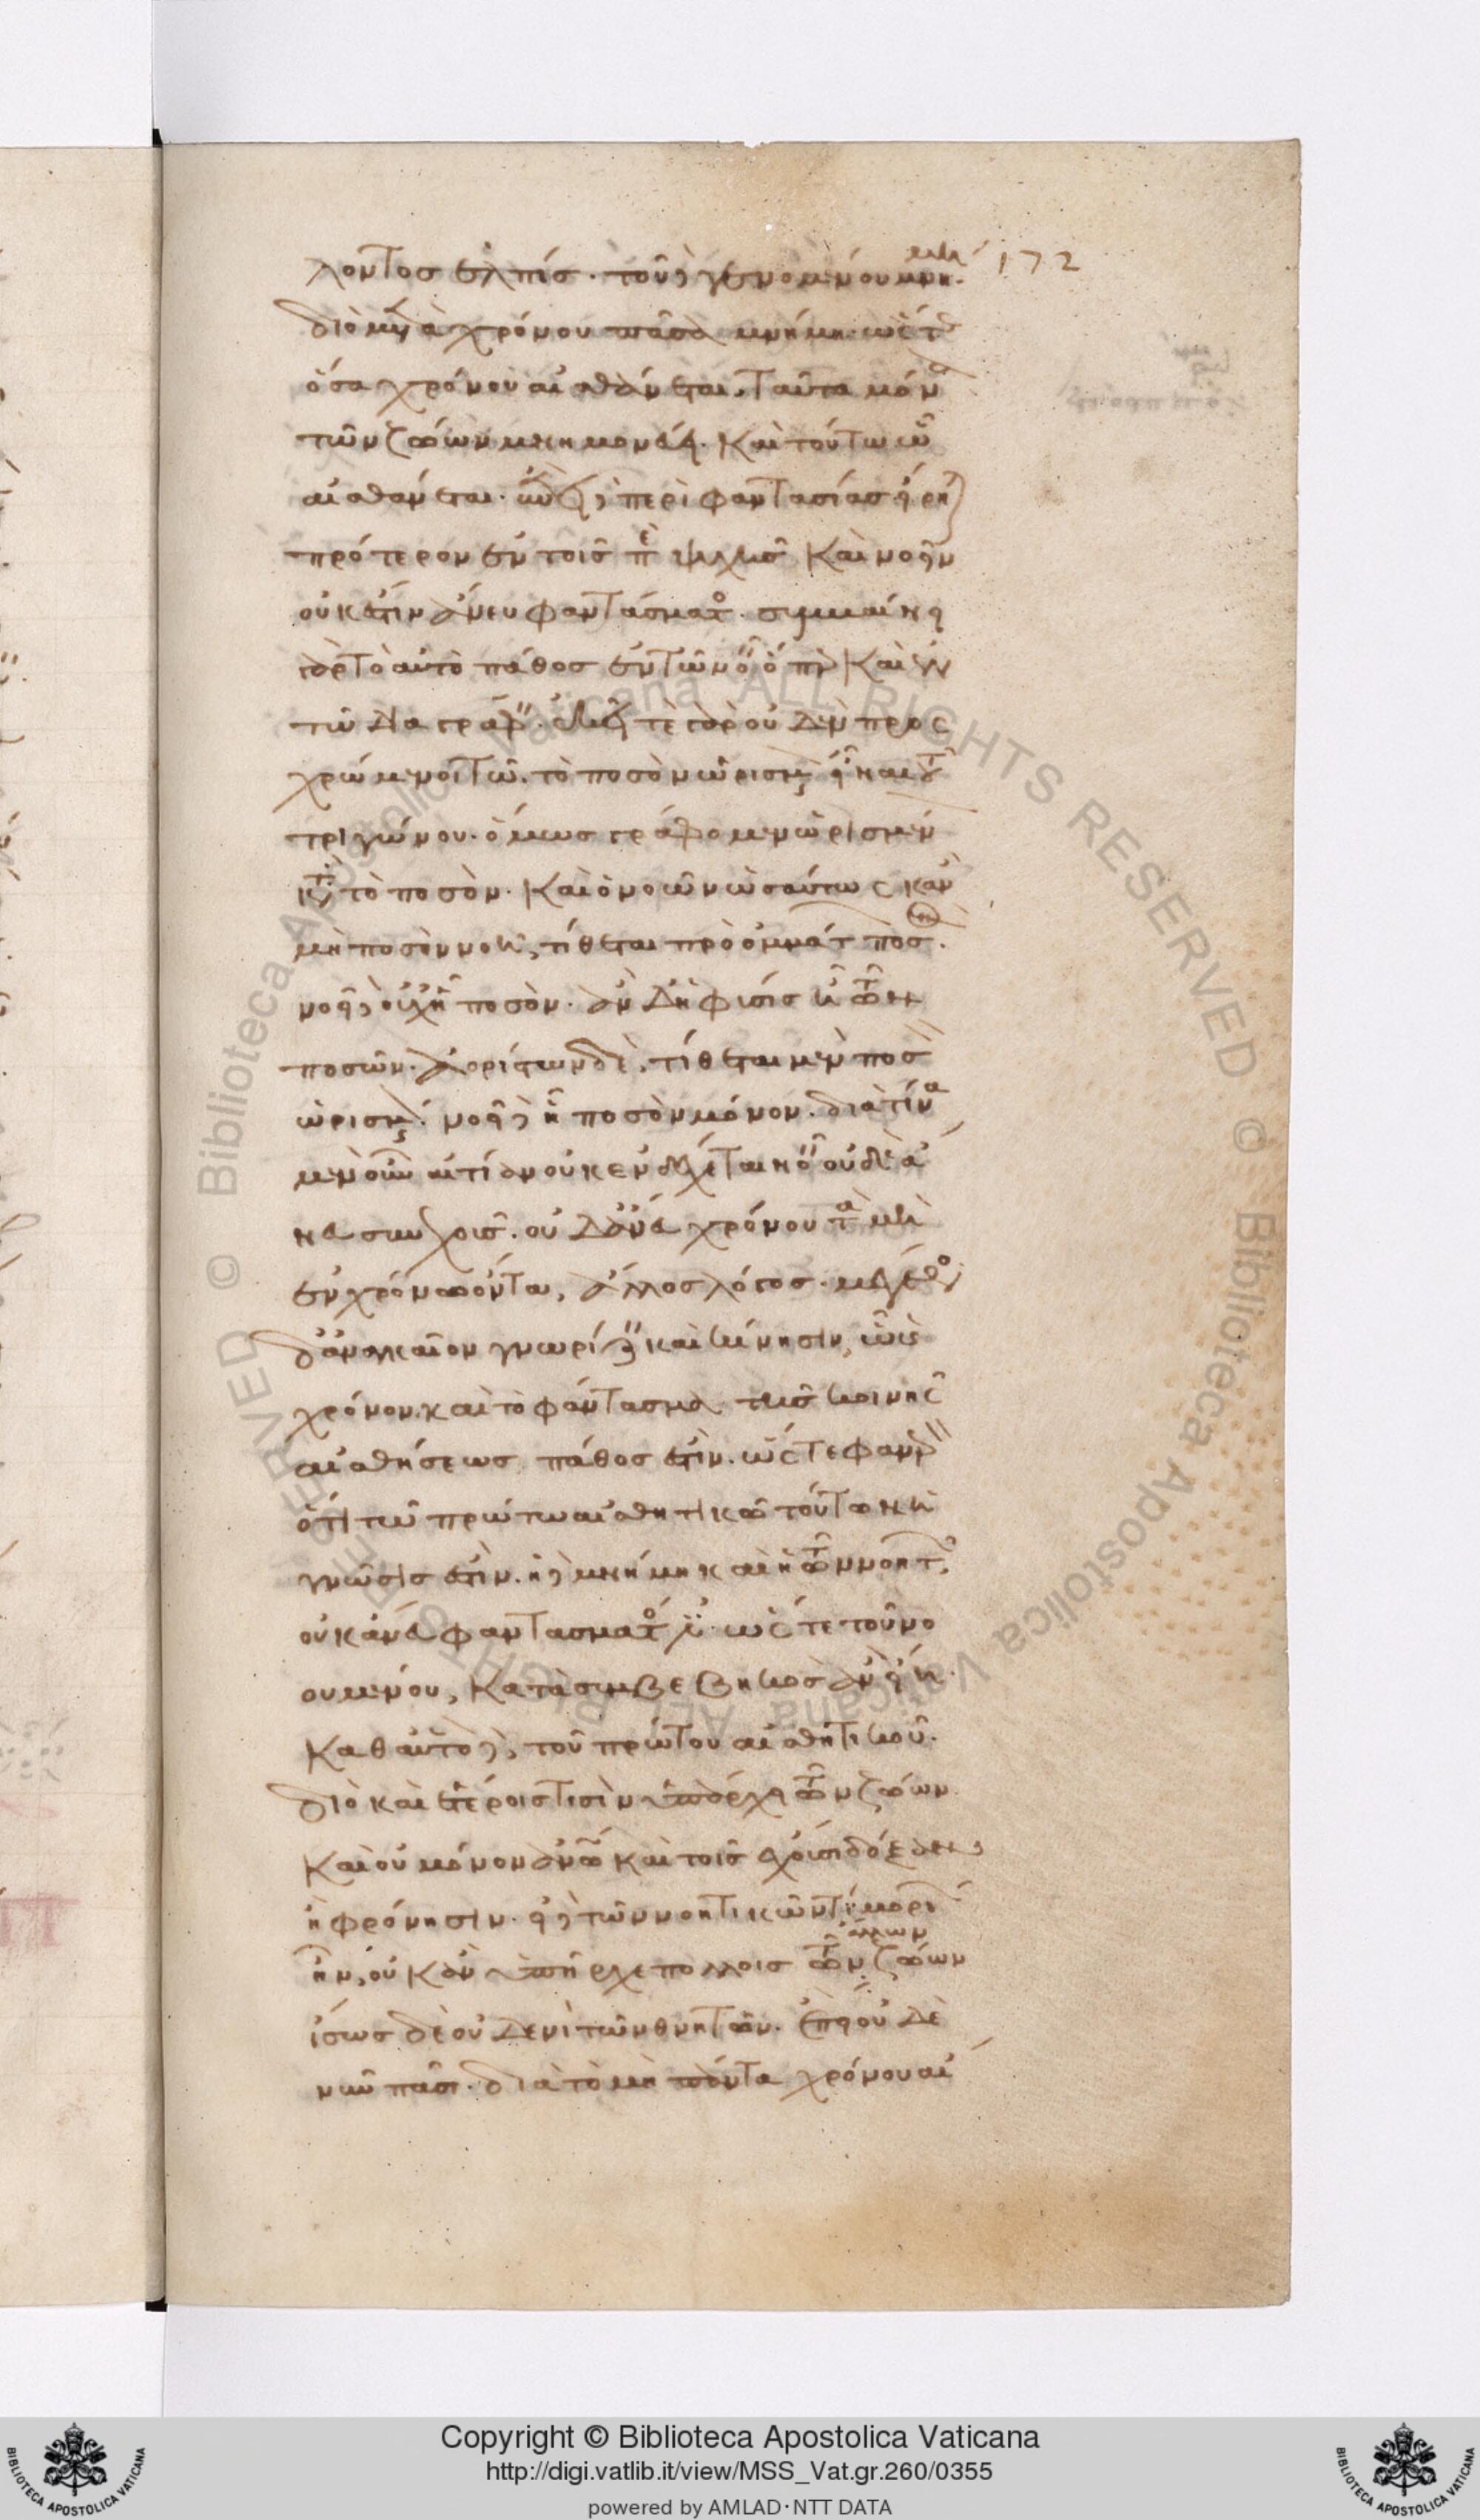 λοντος ἐλπίς· τοῦ δὲ γενομένου μνήμη· 172
διὸ μετὰ χρόνου πᾶσα μνήμη· ὥσθ'
ὅσα χρόνου αἰσθάνεται, ταῦτα μόνα
τῶν ζώων μνημονεύει· καὶ τούτω ᾧ
αἰσθάνεται· ἐπεὶ δὲ περὶ φαντασίας εἴρηται
πρότερον ἐν τοῖς περὶ ψυχῆς καὶ νοεῖν
οὐκ ἔστιν ἄνευ φαντάσματος· συμβαίνει
γὰρ τὸ αὐτὸ πάθος ἐν τῶ νοεῖν ὅπερ καὶ ἐν
τῶ διαγράφειν· ἐκεῖ τε γὰρ οὐδὲν προσ
χρώμενοι τῶ τὸ ποσὸν ὡρισμένον εἶναι τοῦ
τριγώνου· ὅμως γράφομεν ὡρισμένον
κατὰ τὸ ποσόν· καὶ ὁ νοῶν ὡσαύτως κἂν
μὴ ποσὸν νοῇ, τίθεται πρὸ ὀμμάτων ποσόν·
νοεῖ δ' οὐχ ᾗ ποσόν· ἂν δ' ἡ φύσις ᾖ τῶν
ποσῶν· ἀορίστων δὲ, τίθεται μὲν ποσὸν
ὡρισμένον· νοεῖ δὲ ᾗ ποσὸν μόνον· διὰ τίνα
μὲν οὖν αἰτίαν οὐκ ἐνδέχεται νοεῖν οὐδὲν ἄ
νευ συνεχοῦς· οὐδ' ἄνευ χρόνου τὰ μὴ
ἐν χρόνω ὄντα, ἄλλος λόγος· μέγεθος
δ' ἀναγκαῖον γνωρίζειν καὶ κίνησιν, ᾧ καὶ
χρόνον· καὶ τὸ φάντασμα τῆς κοινῆς
αἰσθήσεως πάθος ἐστίν· ὥστε φανερὸν
ὅτι τῶ πρώτω αἰσθητικῶ τούτων ἡ
γνῶσις ἐστίν· ἡ δὲ μνήμη καὶ ἡ τῶν νοητῶν,
οὐκ ἄνευ φαντάσματός ἐστιν· ὥστε τοῦ νο
ουμένου, κατὰ συμβεβηκὸς ἂν εἴη·
καθ' αὑτὸ δὲ, τοῦ πρώτου αἰσθητικοῦ·
διὸ καὶ ἑτέροις τισὶν ὑπάρχει τῶν ζώων
καὶ οὐ μόνον ἀνθρώποις καὶ τοῖς ἔχουσι δόξαν
ἢ φρόνησιν· εἰ δὲ τῶν νοητικῶν τι μορίων
ἦν, οὐκ ἂν ὑπῆρχε πολλοῖς τῶν ἄλλων ζώων
ἴσως δὲ οὐδενὶ τῶν θνητῶν· ἐπεὶ οὐδὲ
νῦν πᾶσι· διὰ τὸ μὴ πάντα χρόνου αἴ
Copyright © Biblioteca Apostolica Vaticana
http://digi.vatlib.it/view/MSS_Vat.gr.260/0355
powered by AMLAD·NTT DATA